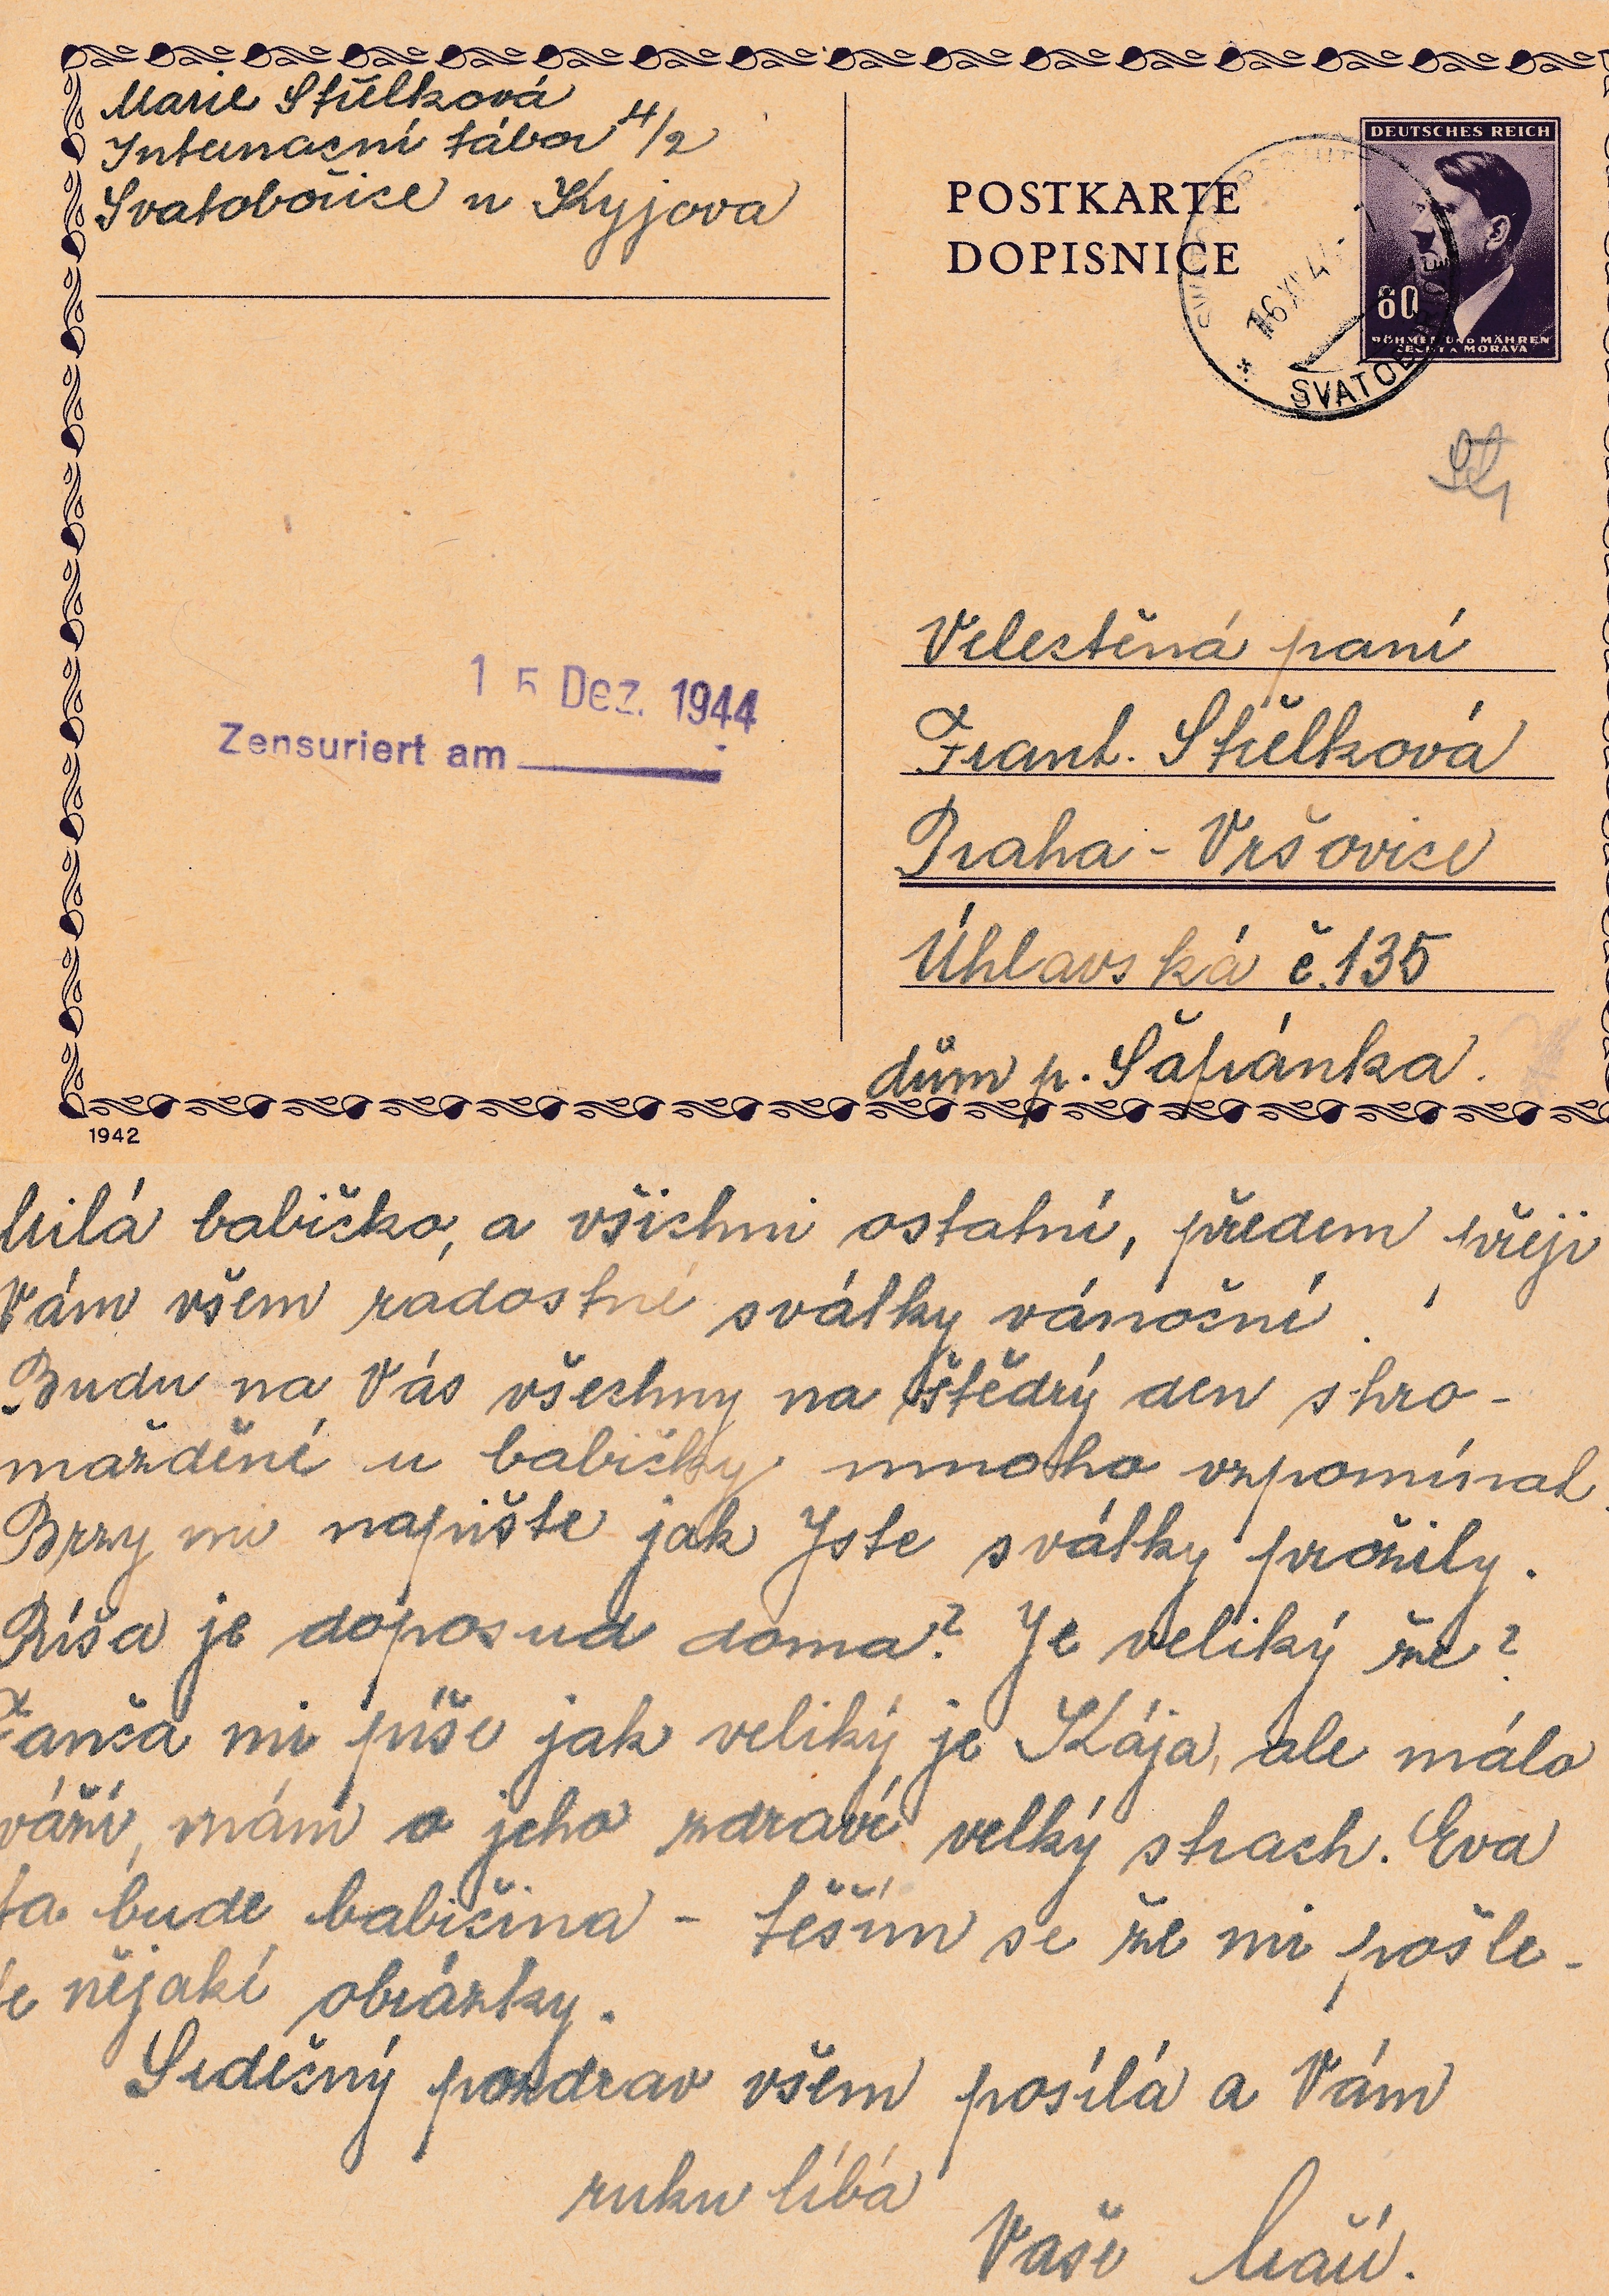 Marie Střelková
Internační tábor 4/2
Svatobořice u Kyjova
POSTKARTE
DOPISNICE
DEUTSCHES REICH
60
BÖHMEN UND MÄHREN
ČECHY A MORAVA
SVATOBO
15 Dez. 1944
Zensuriert am
Velectěná paní
Frant. Střelková
Praha - Vršovice
Úhlavská č. 135
dům p. Šafránka.
1942
Milá babičko, a všichni ostatní, předem přeji
Vám všem radostné svátky vánoční!
Budu na Vás všechny na štědrý den shro-
mážděné u babičky mnoho vzpomínat.
Brzy mi napište jak Jste svátky prožily.
Ríša je doposud doma? Je veliký že?
Fanča mi píše jak veliký je Kája, ale málo
váží, mám o jeho zdraví velký strach. Eva
ta bude babiččina - těším se že mi pošle-
te nějaké obrázky.
Srdečný pozdrav všem posílá a Vám
ruku líbá
Vaše Maři.